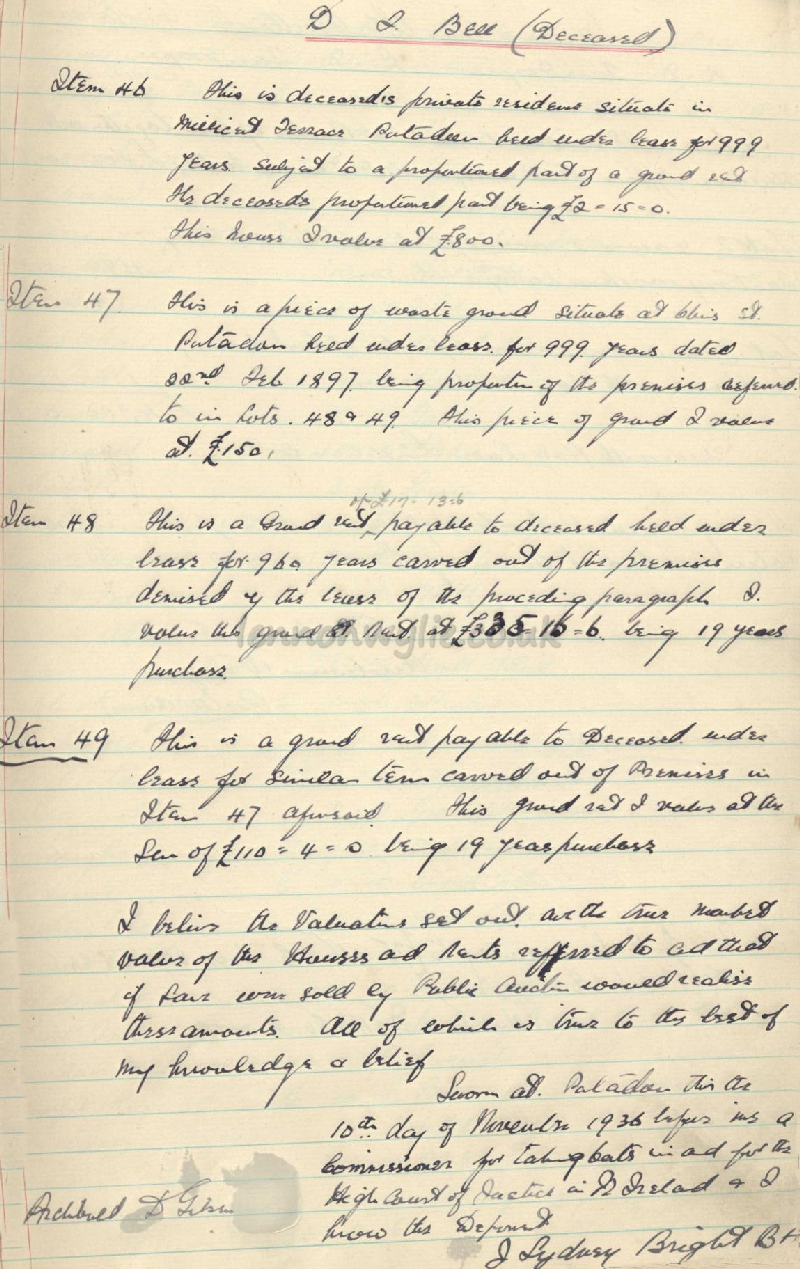 D I Bell (Deceased)
Item 46 This is deceased's private residence situate in
Millicent Terrace Portadown held under lease for 999
years subject to a proportioned part of a ground rent
the deceased's proportioned part being £2 = 15 = 0.
This house I value at £800.
Item 47 This is a piece of waste ground situate at St.
Portadown held under lease for 999 years dated
22nd Feb 1897 being proportion of the premises referred
to in Lots. 48 & 49 This piece of ground I value
at £150.
of £17 - 13=6
Item 48 This is a Ground rent payable to deceased held under
lease for 960 years carved out of the premises
demised by the lease of the preceding paragraph I
value this ground rent at £335=16=6 being 19 years
purchase
lennonwylie.co.uk
Item 49 This is a ground rent payable to Deceased under
lease for similar term carved out of Premises in
Item 47 aforesaid This ground rent I value at the
Sum of £110 = 4 = 0 being 19 years purchase
I believe the Valuations set out are the true market
value of the Houses and Rents referred to and that
if same were sold by Public Auction would realise
these amounts. All of which is true to the best of
my knowledge & belief
Sworn at Portadown this the
10th day of November 1936 before me a
Commissioner for taking oaths in and for the
High Court of Justice in N Ireland & I
know the Deponent
Archibald D Gibson
J Sydney Bright